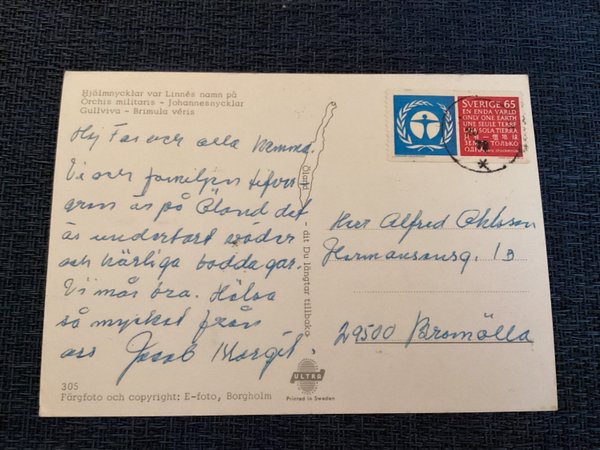 Hjälmnycklar var Linnés namn på
Orchis militaris - Johannesnycklar
Gullviva - Brimula véris
Hej Far och alla hemma.
Vi och familjen
är på Öland det
är underbart väder
och härliga baddagar.
Vi mår bra. Hälsa
så mycket från
oss Jacob Margit.
305
Färgfoto och copyright: E-foto, Borgholm
Öland - dit Du längtar tillbaka
ULTRA
Printed in Sweden
SVERIGE 65
EN ENDA VÄRLD
ONLY ONE EARTH
UNE SEULE TERRE
SOLA TIERRA
72
Herr Alfred Ohlsson
Hermansonsg. 13
29500 Bromölla